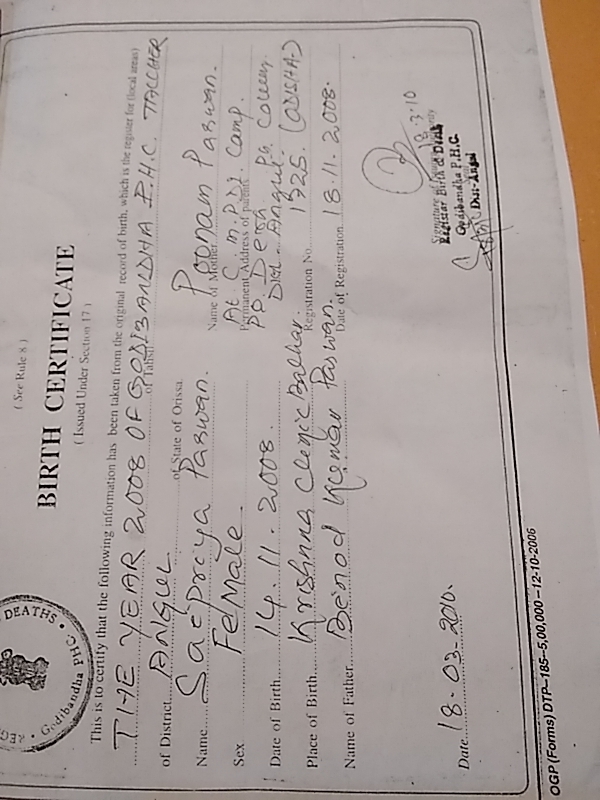 ( See Rule 8 )
BIRTH CERTIFICATE
( Issued Under Section 17 )
DEATHS
Godibandha PHC.
This is to certify that the following information has been taken from the original record of birth, which is the register for (local areas)
THE YEAR 2008 OF GODIBANDHA P.H.C. TALCHER
of Tahsil
of District ANGUL of State of Orissa.
Name Saipriya Paswan. Name of Mother Poonam Paswan.
Sex FeMale. Permanent Address of parents At C.M.P.D.I. Camp.
PO. Dera
Date of Birth 14.11.2008. Dist. Angul.
Place of Birth Krishna Clenic Balhar. Registration No. 1325. (ODISHA)
Name of Father Benod Kumar Paswan. Date of Registration 18.11.2008.
18.3.10
Registar Birth & Death
Godibandha P.H.C.
Dist-Angul
Date 18.03.2010.
OGP (Forms) DTP–185–5,00,000–12-10-2006